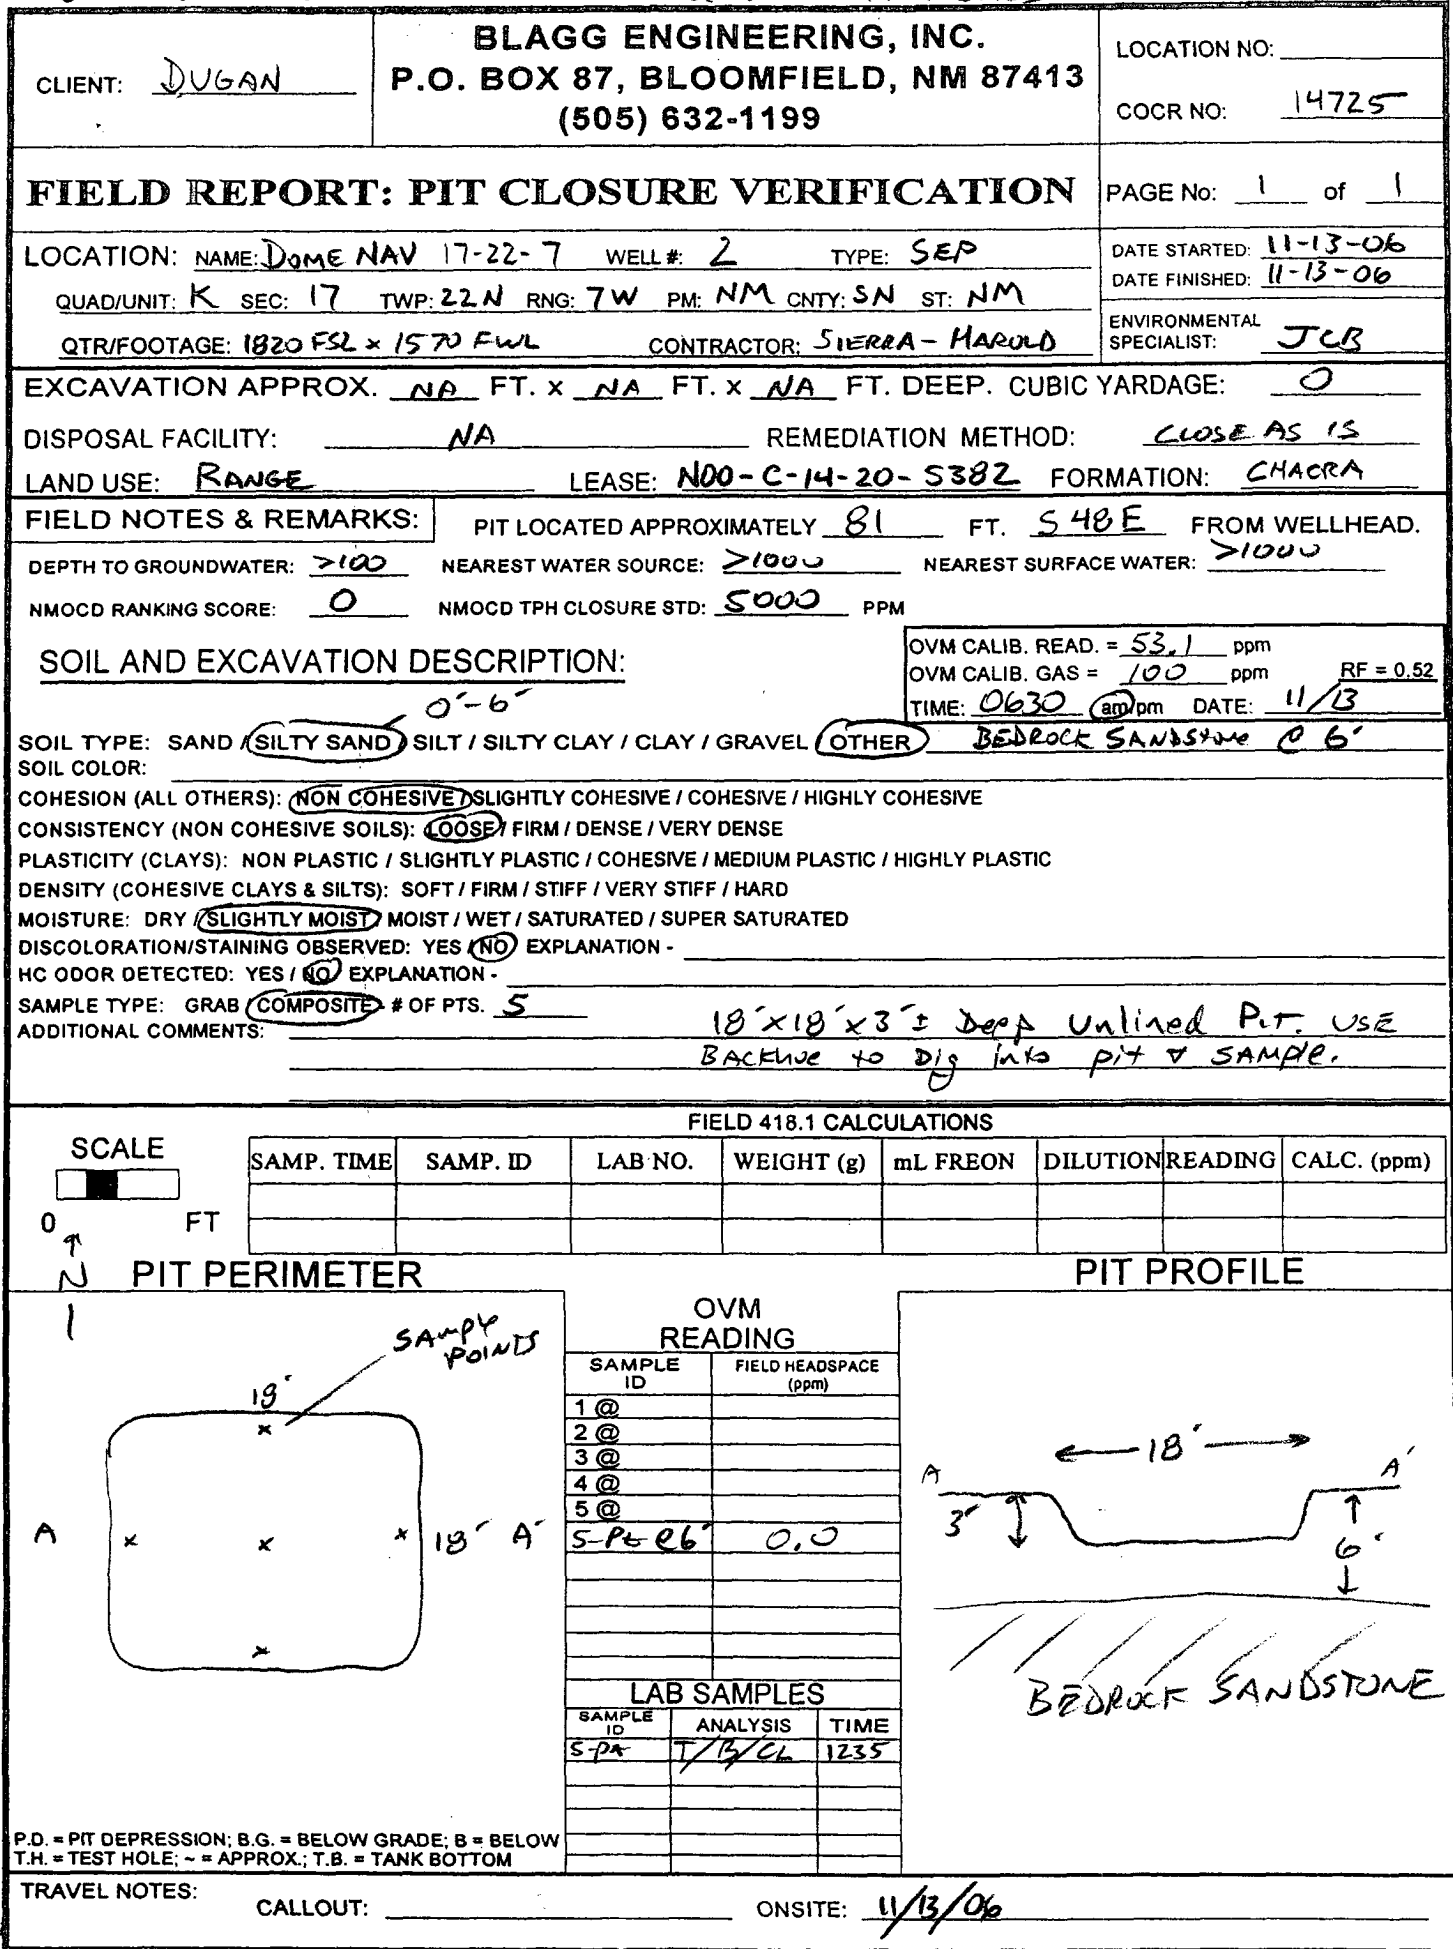 CLIENT: DUGAN
BLAGG ENGINEERING, INC.
P.O. BOX 87, BLOOMFIELD, NM 87413
(505) 632-1199
LOCATION NO:
COCR NO: 14725
FIELD REPORT: PIT CLOSURE VERIFICATION
PAGE No: 1 of 1
LOCATION: NAME: DOME NAV 17-22-7 WELL #: 2 TYPE: SEP
QUAD/UNIT: K SEC: 17 TWP: 22N RNG: 7W PM: NM CNTY: SN ST: NM
QTR/FOOTAGE: 1820 FSL x 1570 FWL CONTRACTOR: SIERRA - HAROLD
DATE STARTED: 11-13-06
DATE FINISHED: 11-13-06
ENVIRONMENTAL
SPECIALIST: JCB
EXCAVATION APPROX. NA FT. x NA FT. x NA FT. DEEP. CUBIC YARDAGE: 0
DISPOSAL FACILITY: NA REMEDIATION METHOD: CLOSE AS IS
LAND USE: RANGE LEASE: N00-C-14-20-5382 FORMATION: CHACRA
FIELD NOTES & REMARKS: PIT LOCATED APPROXIMATELY 81 FT. S48E FROM WELLHEAD.
DEPTH TO GROUNDWATER: >100 NEAREST WATER SOURCE: >1000 NEAREST SURFACE WATER: >1000
NMOCD RANKING SCORE: 0 NMOCD TPH CLOSURE STD: 5000 PPM
SOIL AND EXCAVATION DESCRIPTION:
OVM CALIB. READ. = 53.1 ppm
OVM CALIB. GAS = 100 ppm RF = 0.52
TIME: 0630 am/pm DATE: 11/13
0'-6'
SOIL TYPE: SAND / SILTY SAND / SILT / SILTY CLAY / CLAY / GRAVEL / OTHER BEDROCK SANDSTONE @ 6'
SOIL COLOR:
COHESION (ALL OTHERS): NON COHESIVE / SLIGHTLY COHESIVE / COHESIVE / HIGHLY COHESIVE
CONSISTENCY (NON COHESIVE SOILS): LOOSE / FIRM / DENSE / VERY DENSE
PLASTICITY (CLAYS): NON PLASTIC / SLIGHTLY PLASTIC / COHESIVE / MEDIUM PLASTIC / HIGHLY PLASTIC
DENSITY (COHESIVE CLAYS & SILTS): SOFT / FIRM / STIFF / VERY STIFF / HARD
MOISTURE: DRY / SLIGHTLY MOIST / MOIST / WET / SATURATED / SUPER SATURATED
DISCOLORATION/STAINING OBSERVED: YES / NO EXPLANATION -
HC ODOR DETECTED: YES / NO EXPLANATION -
SAMPLE TYPE: GRAB / COMPOSITE - # OF PTS. 5
ADDITIONAL COMMENTS: 18' x 18' x 3' ± Deep Unlined Pit. USE
BACKHOE to Dig into pit & SAMPLE.
FIELD 418.1 CALCULATIONS
SCALE
0 FT
SAMP. TIME SAMP. ID LAB NO. WEIGHT (g) mL FREON DILUTION READING CALC. (ppm)
N PIT PERIMETER
PIT PROFILE
SAMPLE
POINTS
18'
A 18' A'
OVM
READING
SAMPLE ID FIELD HEADSPACE (ppm)
1 @
2 @
3 @
4 @
5 @
5-Pt @6' 0.0
LAB SAMPLES
SAMPLE ID ANALYSIS TIME
5-pt T/B/CL 1235
18'
A A'
3'
6'
BEDROCK SANDSTONE
P.D. = PIT DEPRESSION; B.G. = BELOW GRADE; B = BELOW
T.H. = TEST HOLE; ~ = APPROX.; T.B. = TANK BOTTOM
TRAVEL NOTES:
CALLOUT: ONSITE: 11/13/06